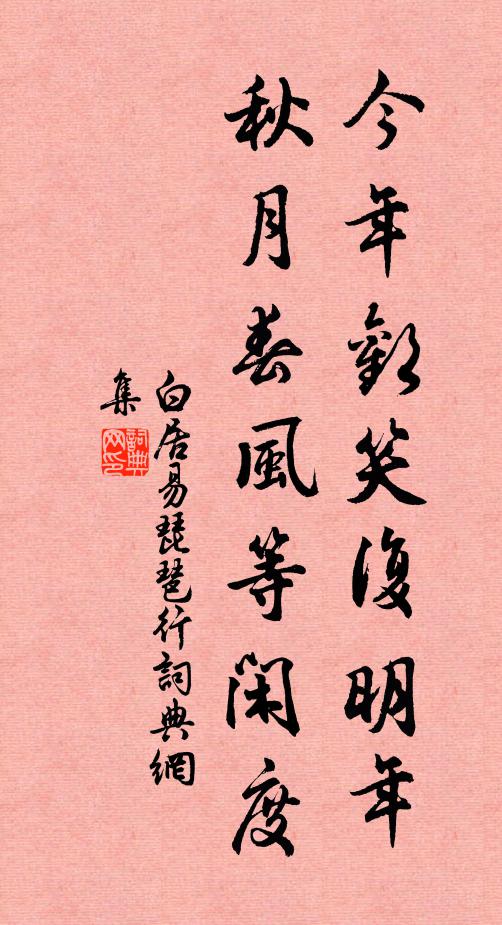 今年歡笑復明年
秋月春風等閑度
白居易琵琶行詞典網
集
詞典网印